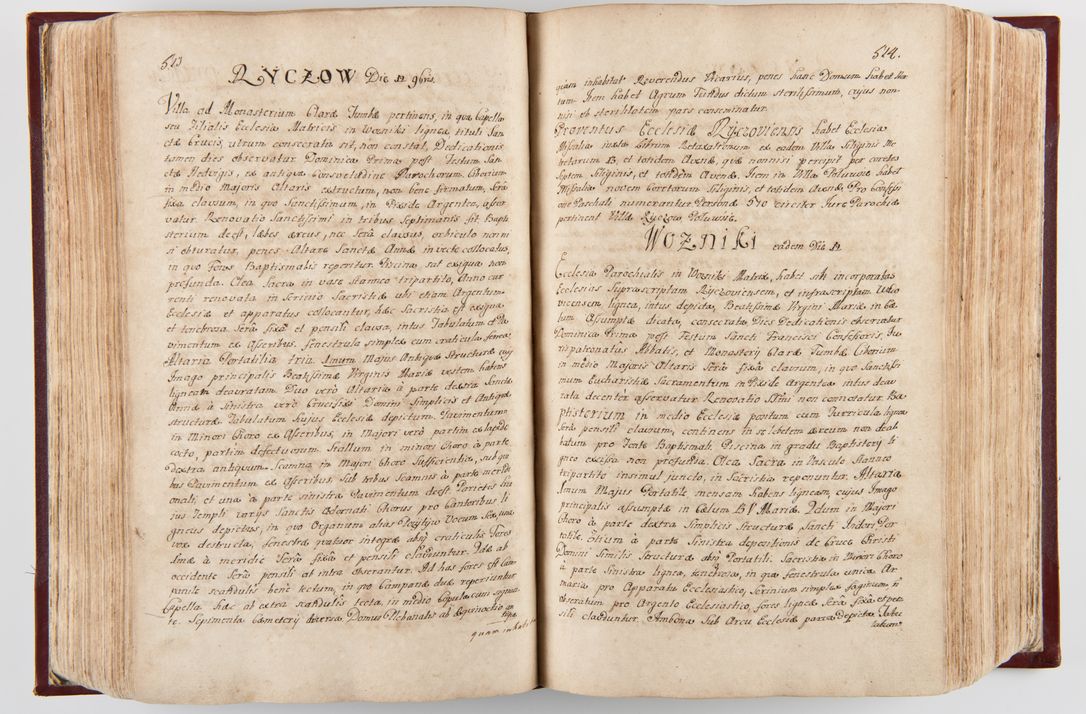 513
RYCZOW Die 12 9bris.
Villa ad Monasterium Claræ Tumbæ pertinens, in qua Capella
seu Filialis Ecclesia Matricis in Wozniki lignea, tituli San
ctæ Crucis, utrum consecrata sit, non constat, Dedicationis
tamen dies observatur Dominica Prima post Festum San
ctæ Hedvigis, ex antiqua Consvetudine Parochorum. Ciborium
in medio Majoris Altaris exstructum, non bene firmatum, Serâ
fixa clausum, in quo Sanctissimum, in Pixide Argentea, asser
vatur. Renovatio Sanctissimi in tribus Septimanis fit. Bapti
sterium deest, lebes æreus, nec Serâ clausus, orbiculo nonni
si obturatur, penes Altare Sanctæ Annæ in recte collocatus,
in quo Fons Baptismalis reperitur. Piscina, sat exigua non
profunda. Olea Sacra in vase stanneo tripartito, Anno cur
renti renovata in Scrinio Sacristiæ ubi etiam Argentum
Ecclesiæ et apparatus collocantur, hæc Sacristia est exigua
et tenebrosa Serâ fixâ et pensili clausa, intus Tabulatum et Pa
vimentum ex Asseribus, fenestrula simplex cum craticula ferrea
Altaria Portatilia tria. Imum Majus Antiquæ Structuræ cujus
Imago principalis Beatissimæ Virginis Mariæ vestem habens
ligneam deauratam. Duo verò Altaria à parte dextra Sanctæ
Annæ à Sinistra verò Crucifixi Domini Simplicis et Antiquæ
structuræ. Tabulatum hujus Ecclesiæ depictum. Pavimentum
in Minori Choro ex Asseribus, in Majori verò partim ex lapide
cocto, partim defectuosum. Stallum in minori Choro à parte
Dextra antiquum. Scamna in Majori Choro Sufficientia, sub qui
bus Pavimentum ex Asseribus, Sub tribus Scamnis à parte meridi
onali, et una à parte sinistra Pavimentum deest. Parietes hu
jus Templi varijs Sanctis Adornati. Chorus pro Cantoribus li
gneus depictus, in quo Organum alias Pozytyw Vocum Sex, una
vox destructa, fenestræ quatuor integræ absq craticulis. Fores
imæ à meridie Serâ fixâ et pensili clauduntur. Aliæ ab
occidente Serâ pensili et intra obserantur. Ad has fores est Cam
panile scandulis bene tectum, in quo Campanæ duæ reperiuntur
Capella hæc ab extra scandulis tecta, in medio Cupula cum signa
te. Sepimenta Cæmeterij diversa Domus Plebanalis ab Æquinoctio
quam inhabitat
514.
quam inhabitat Reverendus Vicarius, penes hanc Domum habet
tum. Item habet Agrum dictum sterilissimum, cujus non
nisi ob sterilitatem pars conseminatur.
Proventus Ecclesiæ Ryczoviensis habet Ecclesia
Missalia juxta Librum Retaxationum ex eadem Villa Siliginis Me
tretarum 13, et totidem Avenæ, quæ nonnisi percipit per coretos
Septem Siliginis, et totidem Avenæ. Item in Villa Połwieś habet
Missalia novem Coretorum Siliginis, et totidem Avenæ. Pro Confessi
one Paschali numerantur Personæ 570 circiter Jure Parochiæ
pertinent Villæ Ryczow Połwieś.
WOZNIKI eadem Die 12.
Ecclesia Parochialis in Wozniki Matrix, habet sibi incorporatas
Ecclesias Suprascriptam Ryczoviensem, et infrascriptam
vicensem lignea, intus depicta, Beatissimæ Virgini Mariæ in Cæ
lum Assumptæ dicata, consecrata Dies Dedicationis observatur
Dominica Prima post Festum Sancti Francisci Confessoris, Ju
rispatronatus Abbatis, et Monasterij Claræ Tumbæ Ciborium
in medio Majoris Altaris Serâ fixâ clausum, in quo Sanctissi
mum Eucharistiæ Sacramentum in Pixide Argentea intus deau
rata decenter asservatur Renovatio SSmi non connotatur. Ba
ptisterium in medio Ecclesiæ positum cum Turricula lignea
Serâ pensili clausum, continens in se lebetem æreum non deal
batum pro Fonte Baptismali. Piscina in gradu Baptisterij li
gneo excisa non profunda. Olea Sacra in Vasculo Stanneo
tripartito insimul juncto, in Sacristia reponuntur. Altaria
Imum Majus Portatile mensam habens ligneam, cujus Imago
principalis assumptæ in Cælum BV Mariæ. 2dum in Majori
Choro à parte dextra Simplicis Structuræ Sancti Isidori Por
tatile. 3tium à parte Sinistra depositionis de Cruce Christi
Domini Similis Structuræ absq Portatili. Sacristia in Minori Choro
à parte Sinistra lignea, tenebrosa, in qua fenestrula unica Ar
maria pro Apparatu Ecclesiastico, Scrinium simplex saginum n
obseratum pro Argento Ecclesiastico, fores ligneæ Serâ fixâ et pen
sili clauduntur. Ambona Sub Arcu Ecclesiæ parva depicta. Tabu
latum